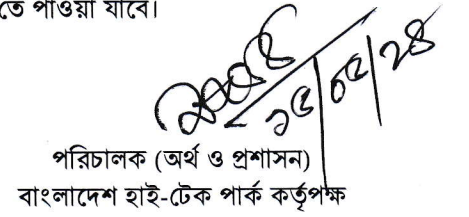 তে পাওয়া যাবে।
১৫/০৫/২৪
পরিচালক (অর্থ ও প্রশাসন)
বাংলাদেশ হাই-টেক পার্ক কর্তৃপক্ষ